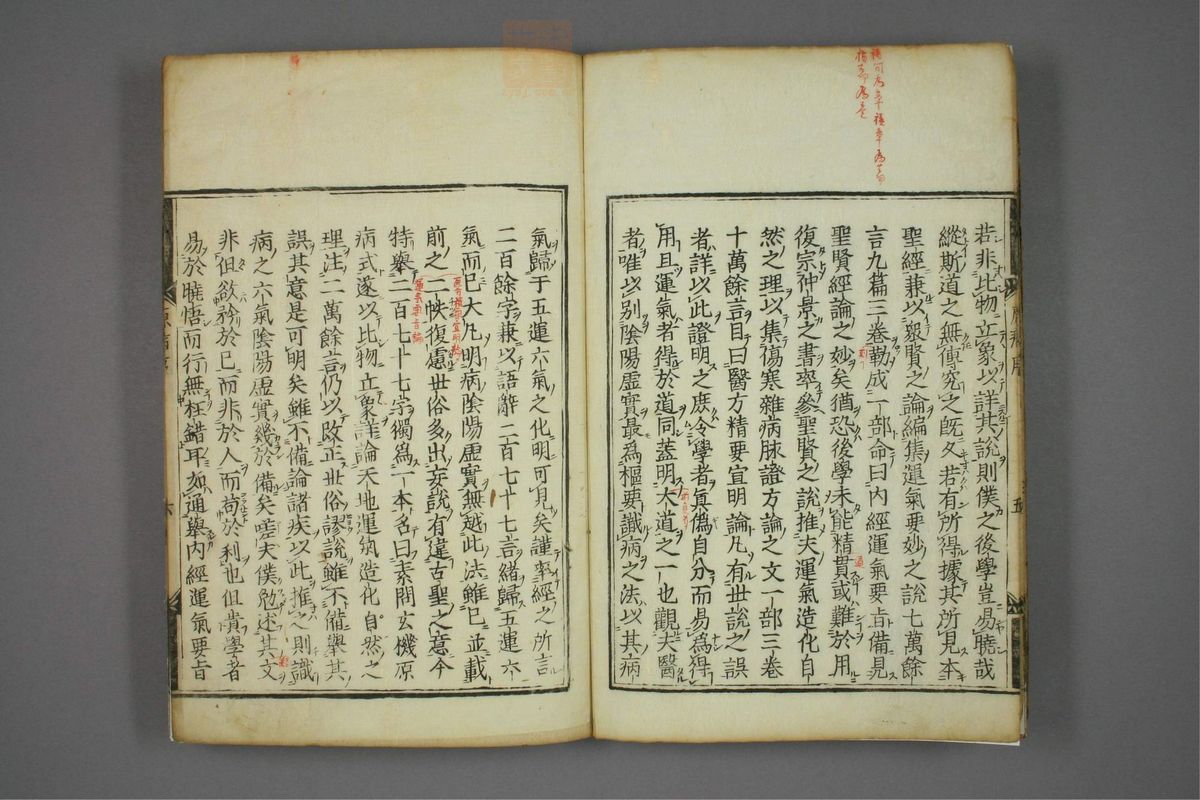 若非比物立象以詳其說則僕之後學豈易曉哉
縱斯道之無傳究之既久若有所得據其所見本
聖經兼以衆賢之論編集運氣要妙之說七萬餘
言九篇三卷勒成一部命曰內經運氣要旨備見
聖賢經論之妙矣猶恐後學未能精貫或難於用
復宗仲景之書率參聖賢之說推夫運氣造化自
然之理以集傷寒雜病脉證方論之文一部三卷
十萬餘言目曰醫方精要宣明論凡有世說之誤
者詳以此證明之庶令學者真僞自分而易爲得
用且運氣者得於道同蓋明大道之一也觀夫醫
者唯以別陰陽虛實最爲樞要識病之法以其病
氣歸于五運六氣之化明可見矣謹率經之所言
二百餘字兼以語辭二百七十七言緒歸五運六
氣而已大凡明病陰陽虛實無越此法雖已並載
前之二帙復慮世俗多出妄說有違古聖之意今
特舉二百七十七字獨爲一本名曰素問玄機原
病式遂以比物立象詳論天地運氣造化自然之
理注二萬餘言仍以改正世俗謬說雖不備舉其
誤其意是可明矣雖不備論諸疾以此推之則識
病之六氣陰陽虛實幾於備矣嗟夫僕勉述其文
非但欲矜於已而非於人而苟於利也但貴學者
易於曉悟而行無枉錯耳如通舉內經運氣要旨